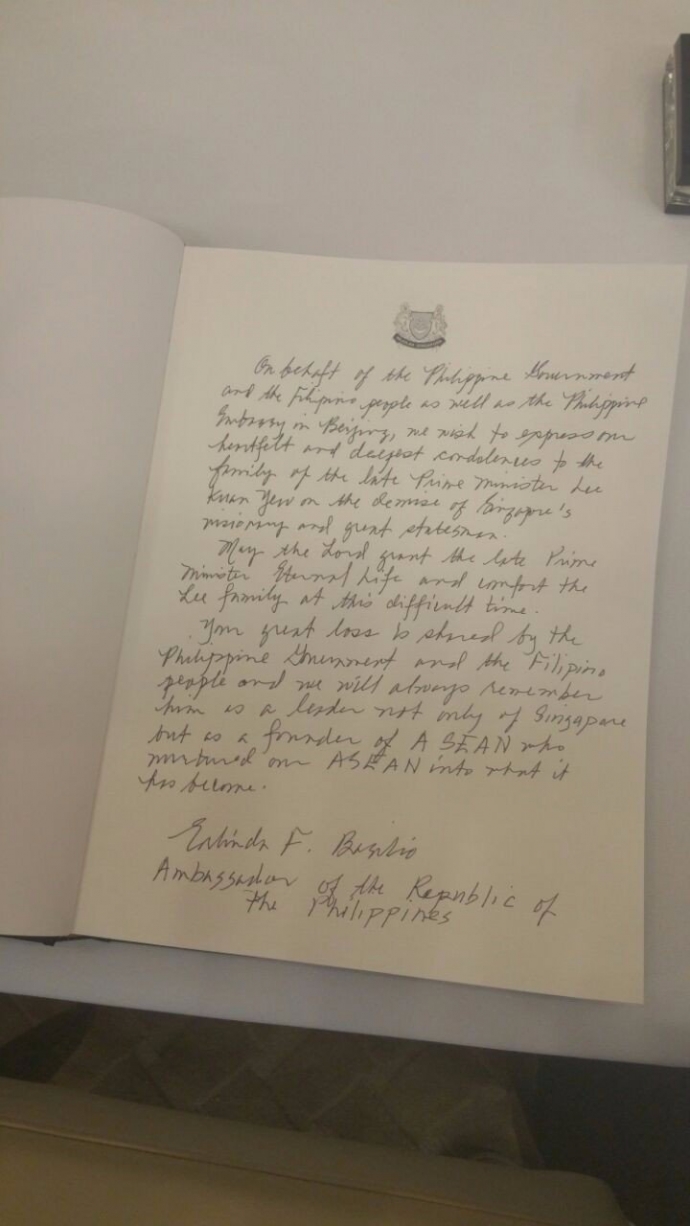 On behalf of the Philippine Government
and the Filipino people as well as the Philippine
Embassy in Beijing, we wish to express our
heartfelt and deepest condolences to the
family of the late Prime Minister Lee
Kuan Yew on the demise of Singapore's
visionary and great statesman.
May the Lord grant the late Prime
Minister Eternal Life and comfort the
Lee family at this difficult time.
Your great loss is shared by the
Philippine Government and the Filipino
people and we will always remember
him as a leader not only of Singapore
but as a founder of ASEAN who
nurtured our ASEAN into what it
has become.
Erlinda F. Basilio
Ambassador of the Republic of
the Philippines